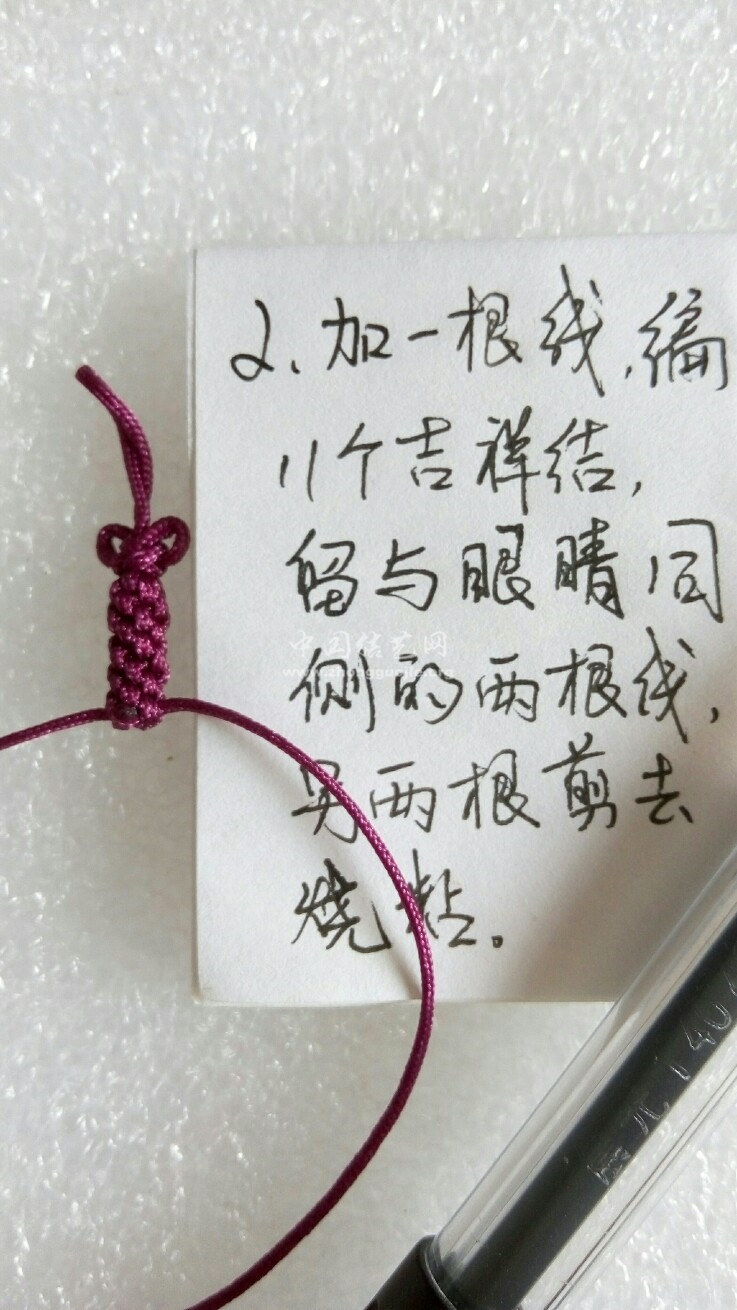 2、加一根线,编
11个吉祥结,
留与眼睛同
侧的两根线,
另两根剪去
烧粘。
中国结艺网
www.zhongguojie.org